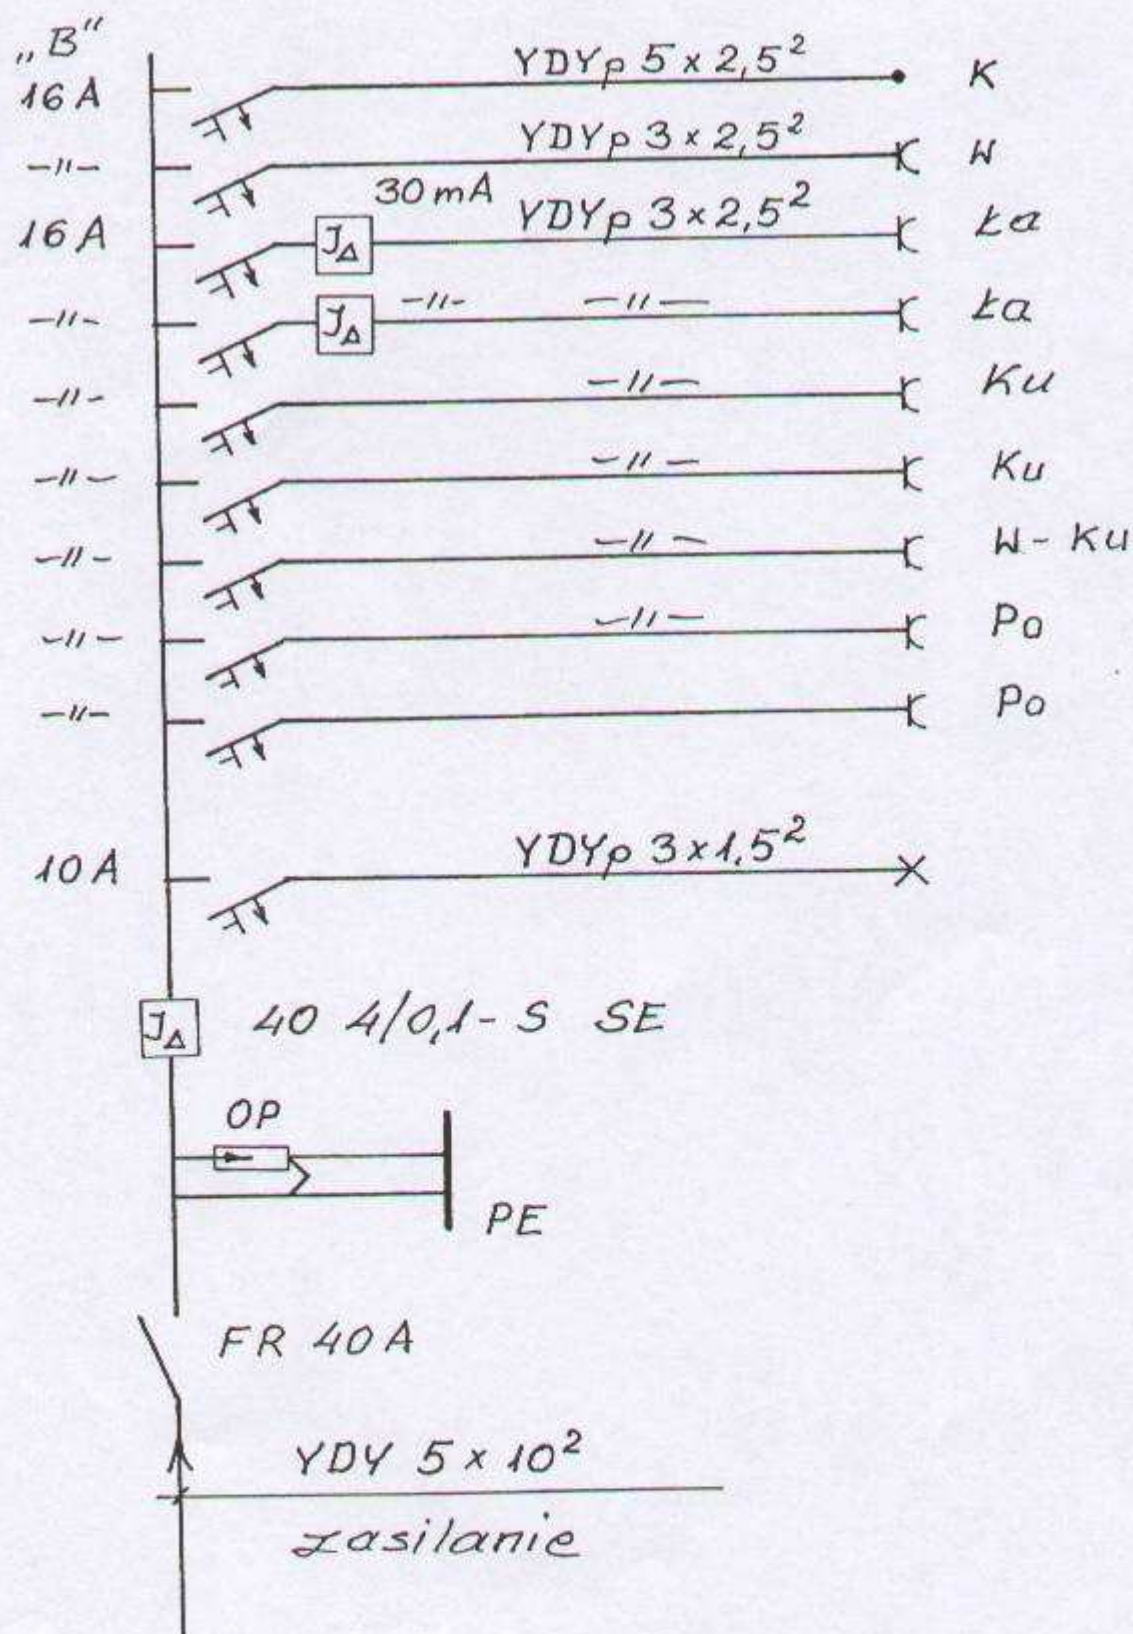 „B”
16 A YDYp 5 x 2,5² K
-"- YDYp 3 x 2,5² W
30 mA
16 A J△ YDYp 3 x 2,5² Ła
-"- J△ -"- -"- Ła
-"- -"- Ku
-"- -"- Ku
-"- -"- W-Ku
-"- -"- Po
-"- Po
10 A YDYp 3 x 1,5²
J△ 40 4/0,1-S SE
OP
PE
FR 40 A
YDY 5 x 10²
zasilanie